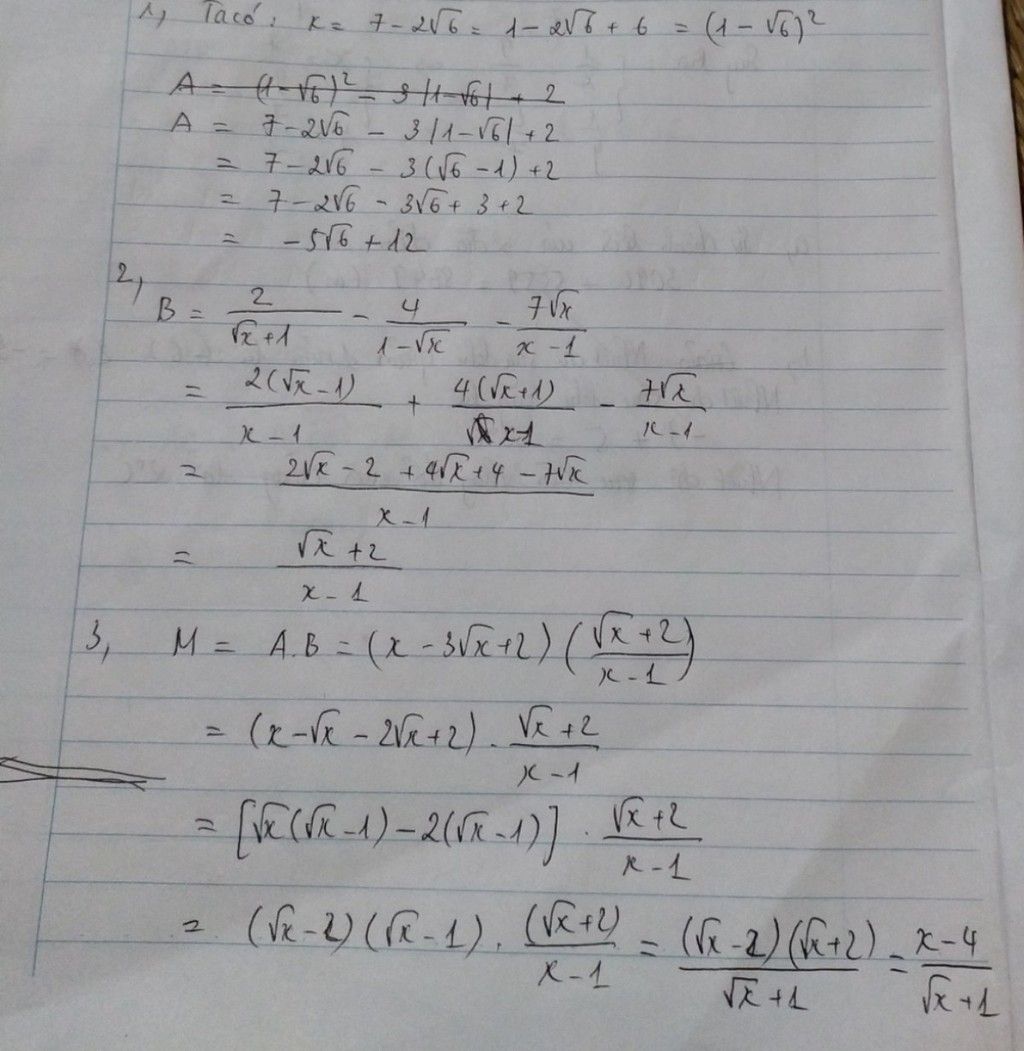 1, Ta có: x = 7 - 2√6 = 1 - 2√6 + 6 = (1 - √6)²
A = (1 - √6)² - 3|1 - √6| + 2
A = 7 - 2√6 - 3|1 - √6| + 2
= 7 - 2√6 - 3(√6 - 1) + 2
= 7 - 2√6 - 3√6 + 3 + 2
= -5√6 + 12
2,
B = 2/(√x + 1) - 4/(1 - √x) - 7√x/(x - 1)
= 2(√x - 1)/(x - 1) + 4(√x + 1)/(x - 1) - 7√x/(x - 1)
= (2√x - 2 + 4√x + 4 - 7√x)/(x - 1)
= (√x + 2)/(x - 1)
3, M = A.B = (x - 3√x + 2)((√x + 2)/(x - 1))
= (x - √x - 2√x + 2) . (√x + 2)/(x - 1)
= [√x(√x - 1) - 2(√x - 1)] . (√x + 2)/(x - 1)
= (√x - 2)(√x - 1) . (√x + 2)/(x - 1) = (√x - 2)(√x + 2)/(√x + 1) = (x - 4)/(√x + 1)